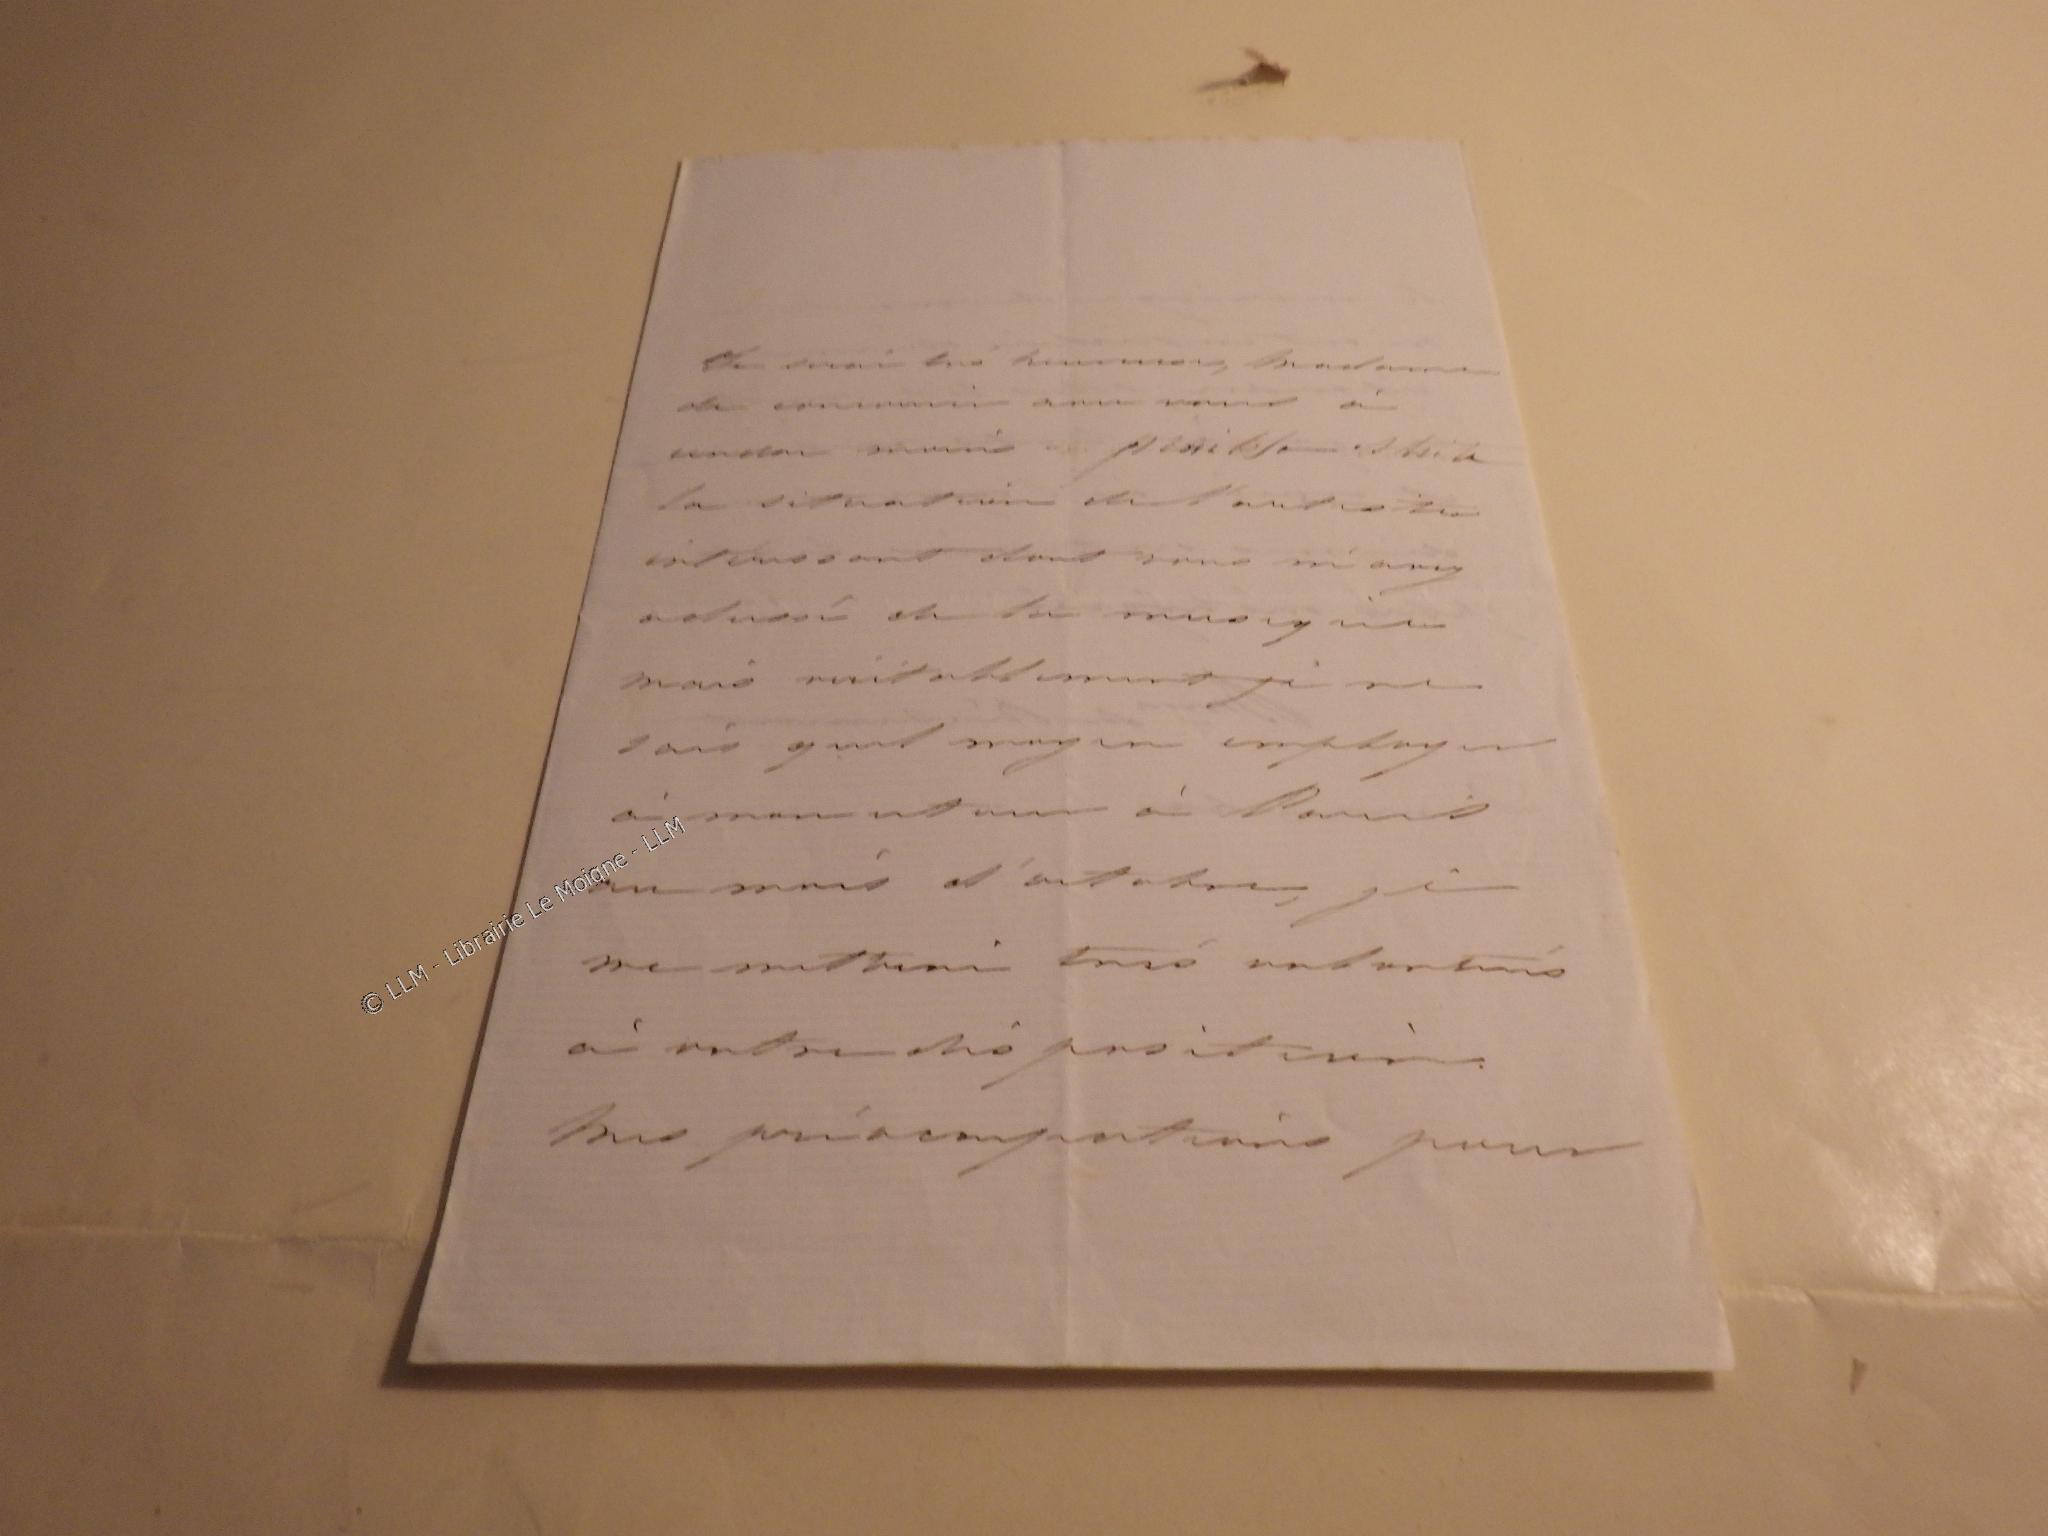 Je serai très heureux, Madame
de concourir avec vous à
rendre moins pénible
la situation de l'artiste
intéressant dont vous m'avez
adressé de la musique
mais véritablement je ne
sais quel moyen employer
à mon retour à Paris
au mois d'octobre, je
me mettrai très volontiers
à votre disposition.
Mes préoccupations pour
© LLM - Librairie Le Moigne - LLM